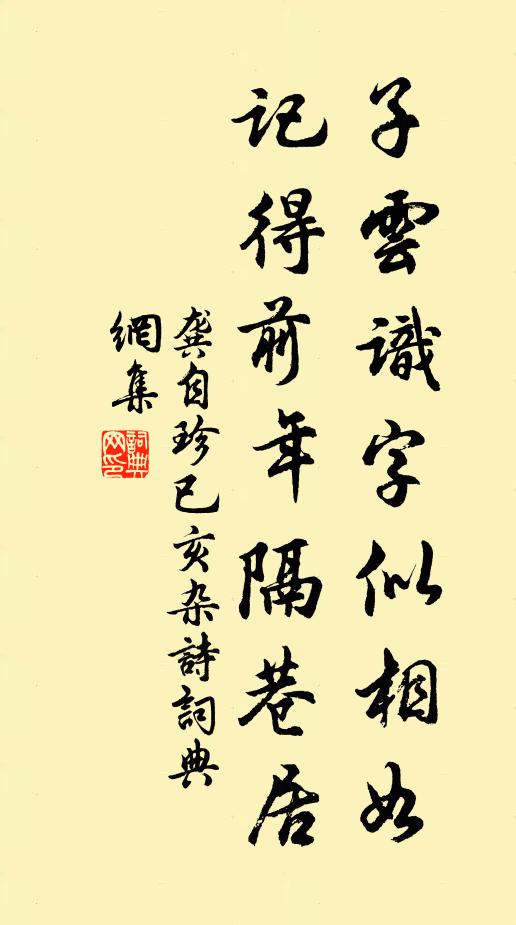 子雲識字似相如
記得前年隔巷居
龔自珍己亥杂詩詞典
網集
詞典網印